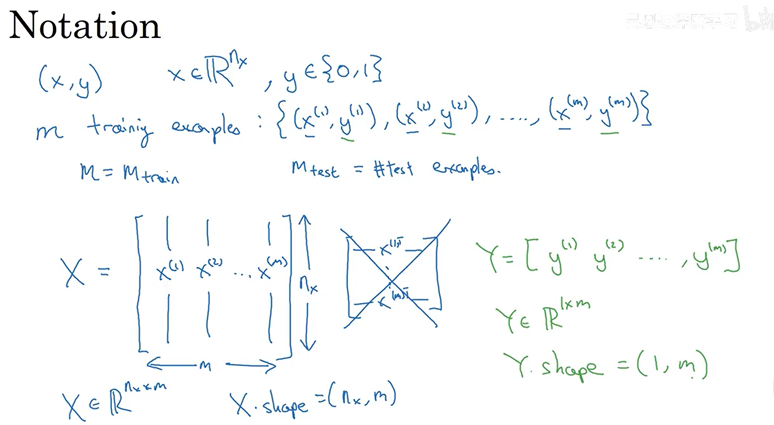 Notation
(x,y) x∈ℝ^{n_x}, y∈{0,1}
m trainiy examples: {(x^{(1)}, y^{(1)}), (x^{(2)}, y^{(2)}), ...., (x^{(m)}, y^{(m)})}
M = M_{train} M_{test} = #test examples.
X = [x^{(1)} x^{(2)} ... x^{(m)}] n_x
m
x^{(1)T}
x^{(m)T}
Y = [y^{(1)} y^{(2)} ...., y^{(m)}]
Y∈ℝ^{1×m}
Y.shape = (1, m)
X∈ℝ^{n_x×m} X.shape = (n_x, m)